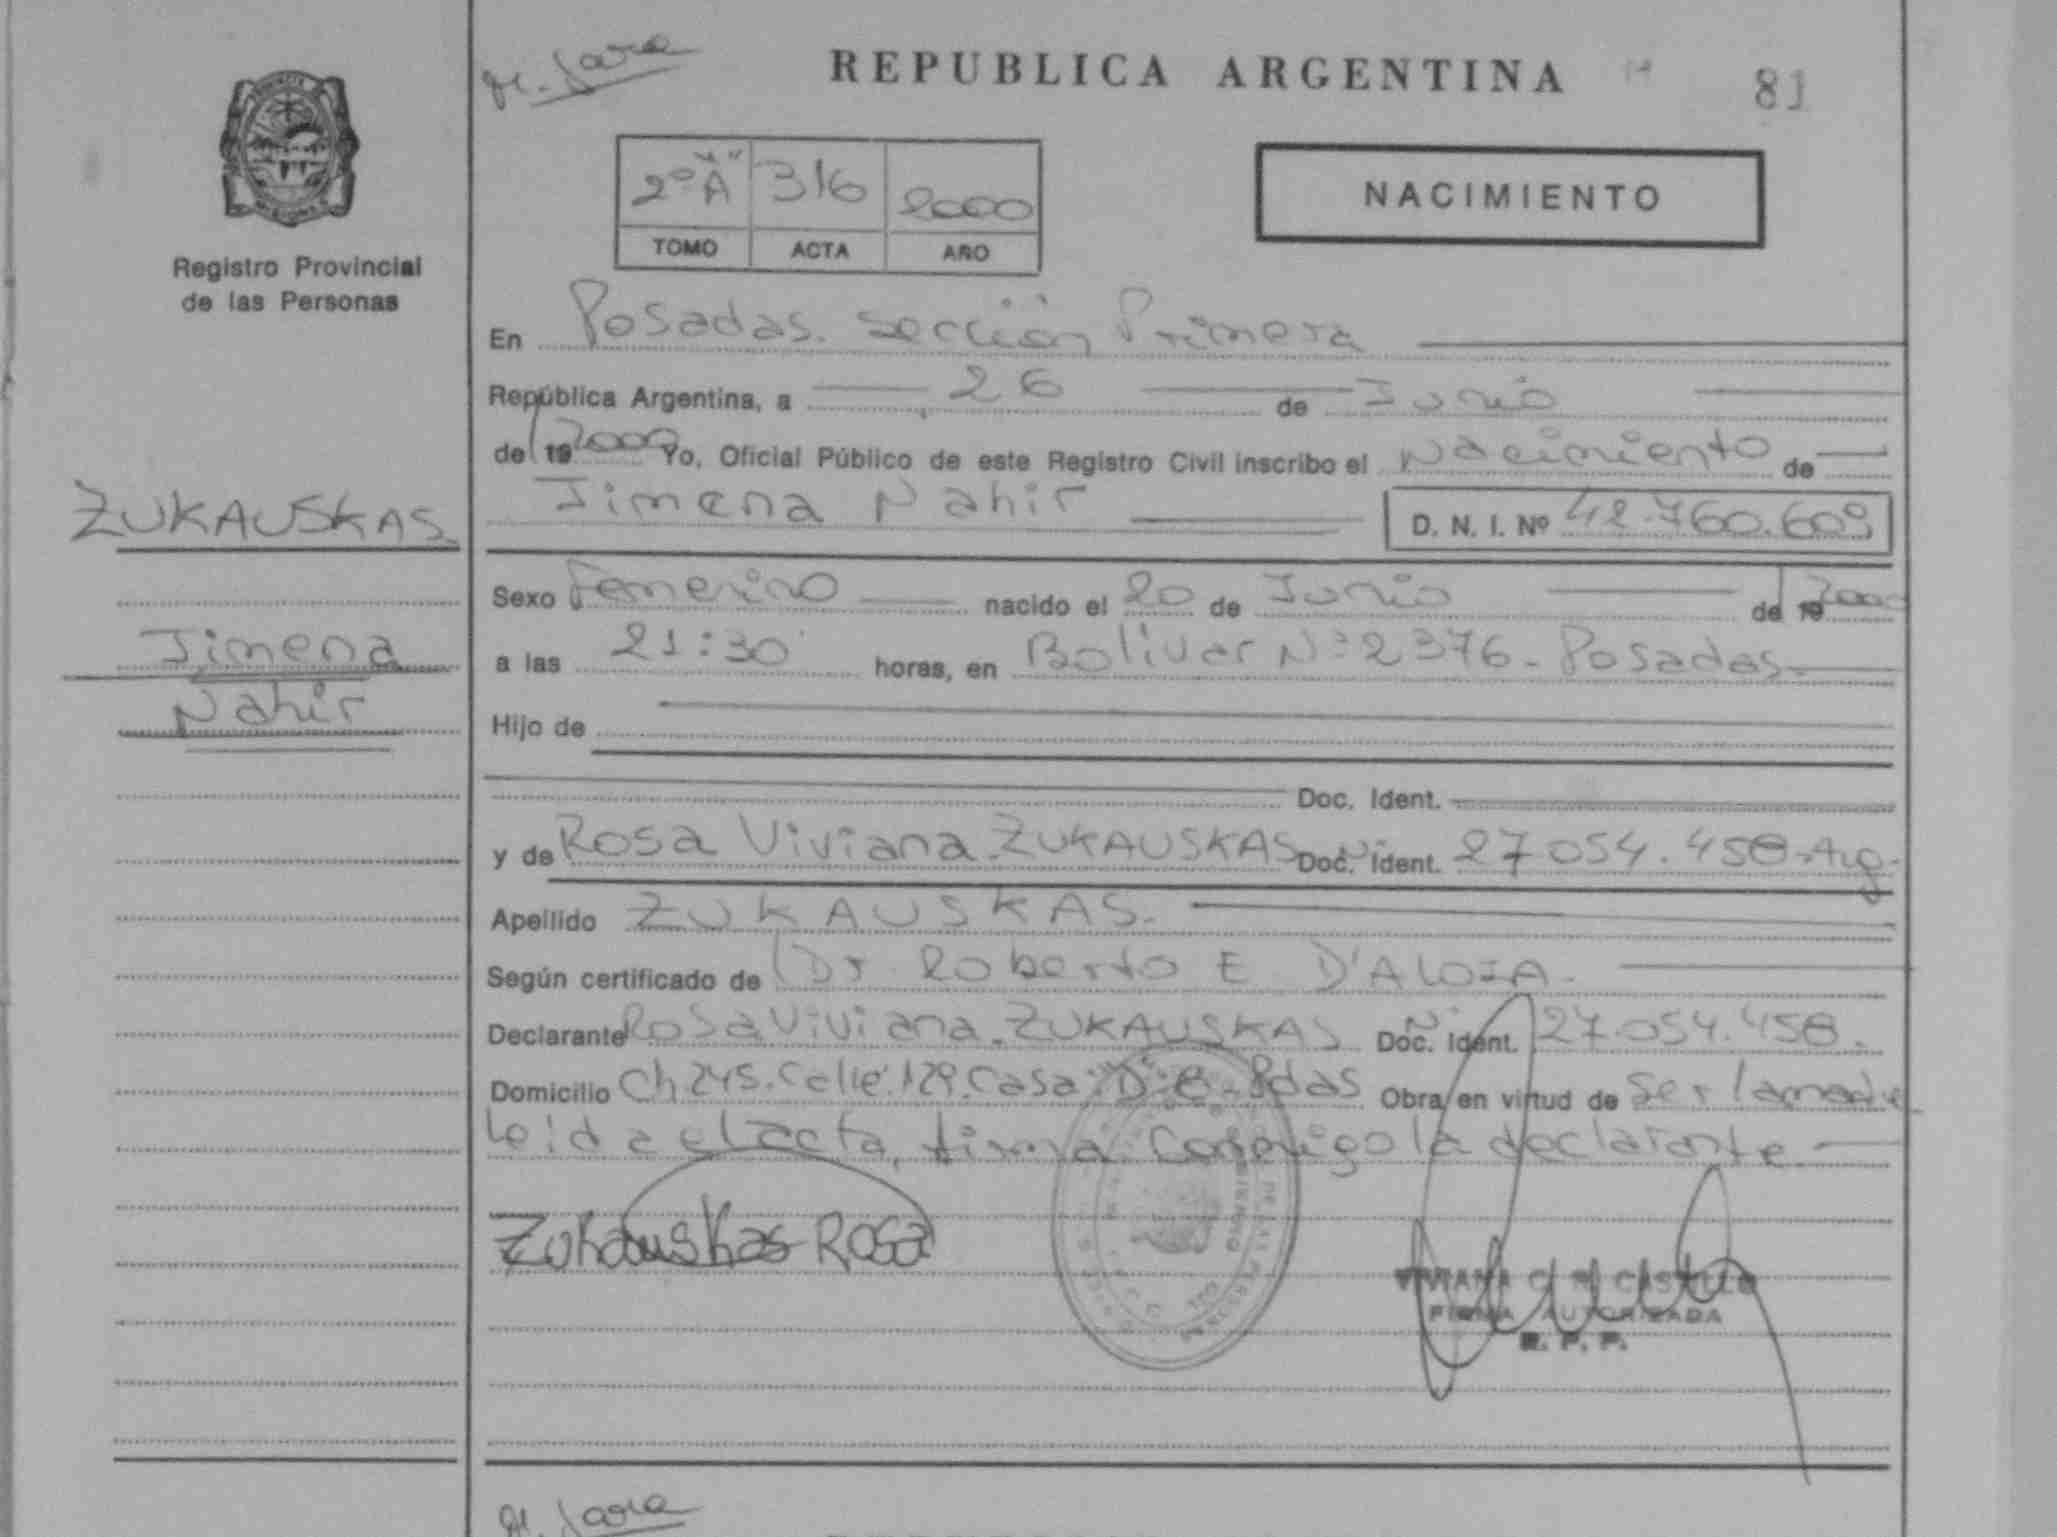 M. Jara
REPUBLICA ARGENTINA
81
2º "A" 316 2000
TOMO ACTA AÑO
NACIMIENTO
Registro Provincial
de las Personas
En Posadas. sección Primera
República Argentina, a 26 de Junio
de 19 2000 Yo, Oficial Público de este Registro Civil inscribo el Nacimiento de
Jimena Nahir D. N. I. Nº 42.760.609
ZUKAUSKAS
Jimena
Nahir
Sexo Femenino nacido el 20 de Junio de 19 2000
a las 21:30 horas, en Bolívar Nº 2376. Posadas.
Hijo de
Doc. Ident.
y de Rosa Viviana ZUKAUSKAS Doc. Ident. 27.054.458 Arg.
Apellido ZUKAUSKAS.
Según certificado de Dr Roberto E D'ALOIA.
Declarante Rosa Viviana. ZUKAUSKAS Doc. Ident. 27.054.458.
Domicilio Ch. 245. Calle. 129. Casa. Pdas Obra en virtud de ser la madre
leida el acta, firma conmigo la declarante
Zukauskas Rosa
VIVIANA CASTILLO
FIRMA AUTORIZADA
R. P. P.
M. Jara